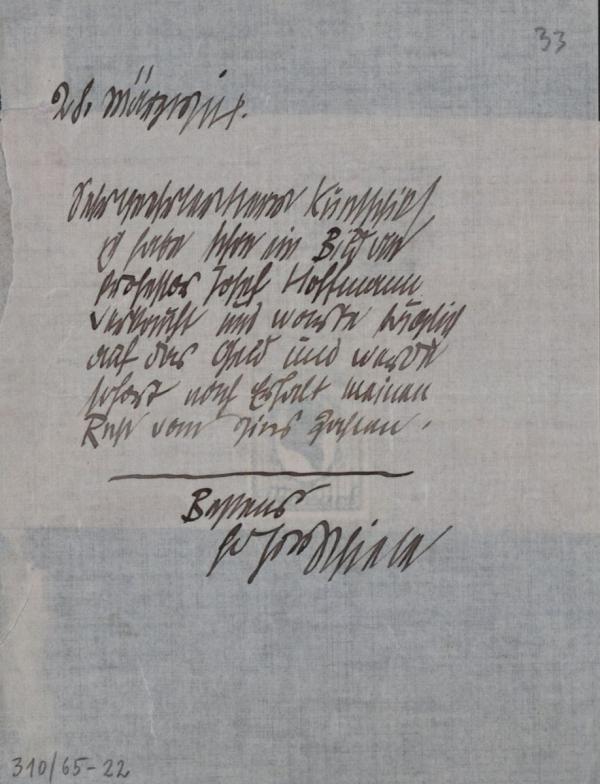 33
28. März 1914.
Sehr geehrter Herr
ich habe schon ein Bild an
Professor Josef Hoffmann
verkauft und warte täglich
auf das Geld und werde
sofort nach Erhalt meinen
Rest vom Zins zahlen.
Bestens
Schiele
310/65-22